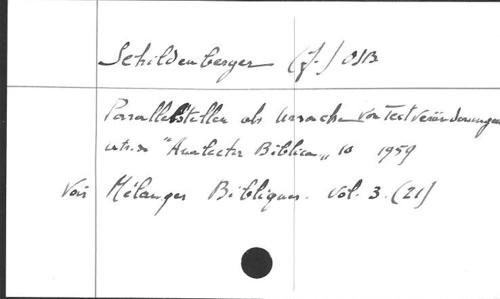 Schildenberger (J.) OSB
Parallelstellen als Ursache von Textveränderungen
"Analecta Biblica" 10 1959
Voir Mélanges Bibliques. Vol. 3. (21)